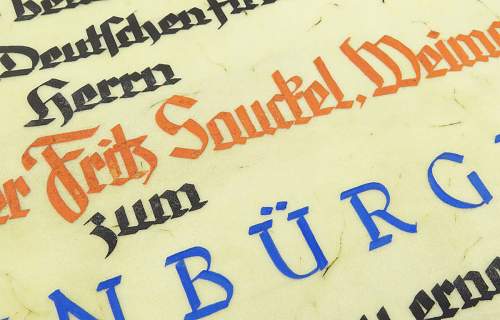 Deutschen
Herrn
er Fritz Sauckel, Weim
zum
NBÜRG
erne